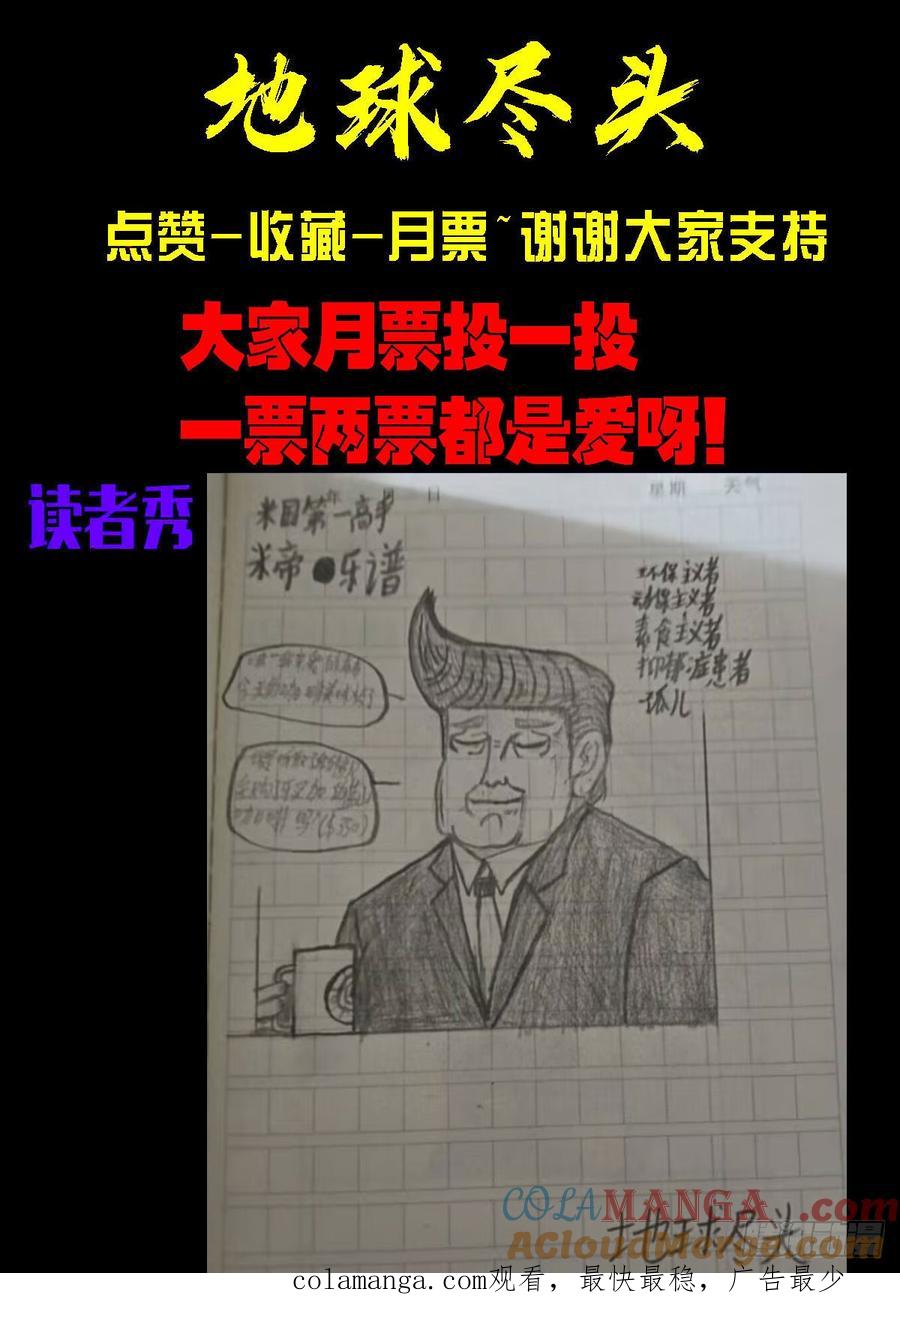 地球尽头
点赞-收藏-月票~谢谢大家支持
大家月票投一投
一票两票都是爱呀!
读者秀
年 日 星期 天气
米国第一高手
米帝●乐谱
环保主义者
动保主义者
素食主义者
抑郁症患者
孤儿
地球尽头
COLAMANGA.com
ACloudMerge.com
colamanga.com观看，最快最稳，广告最少